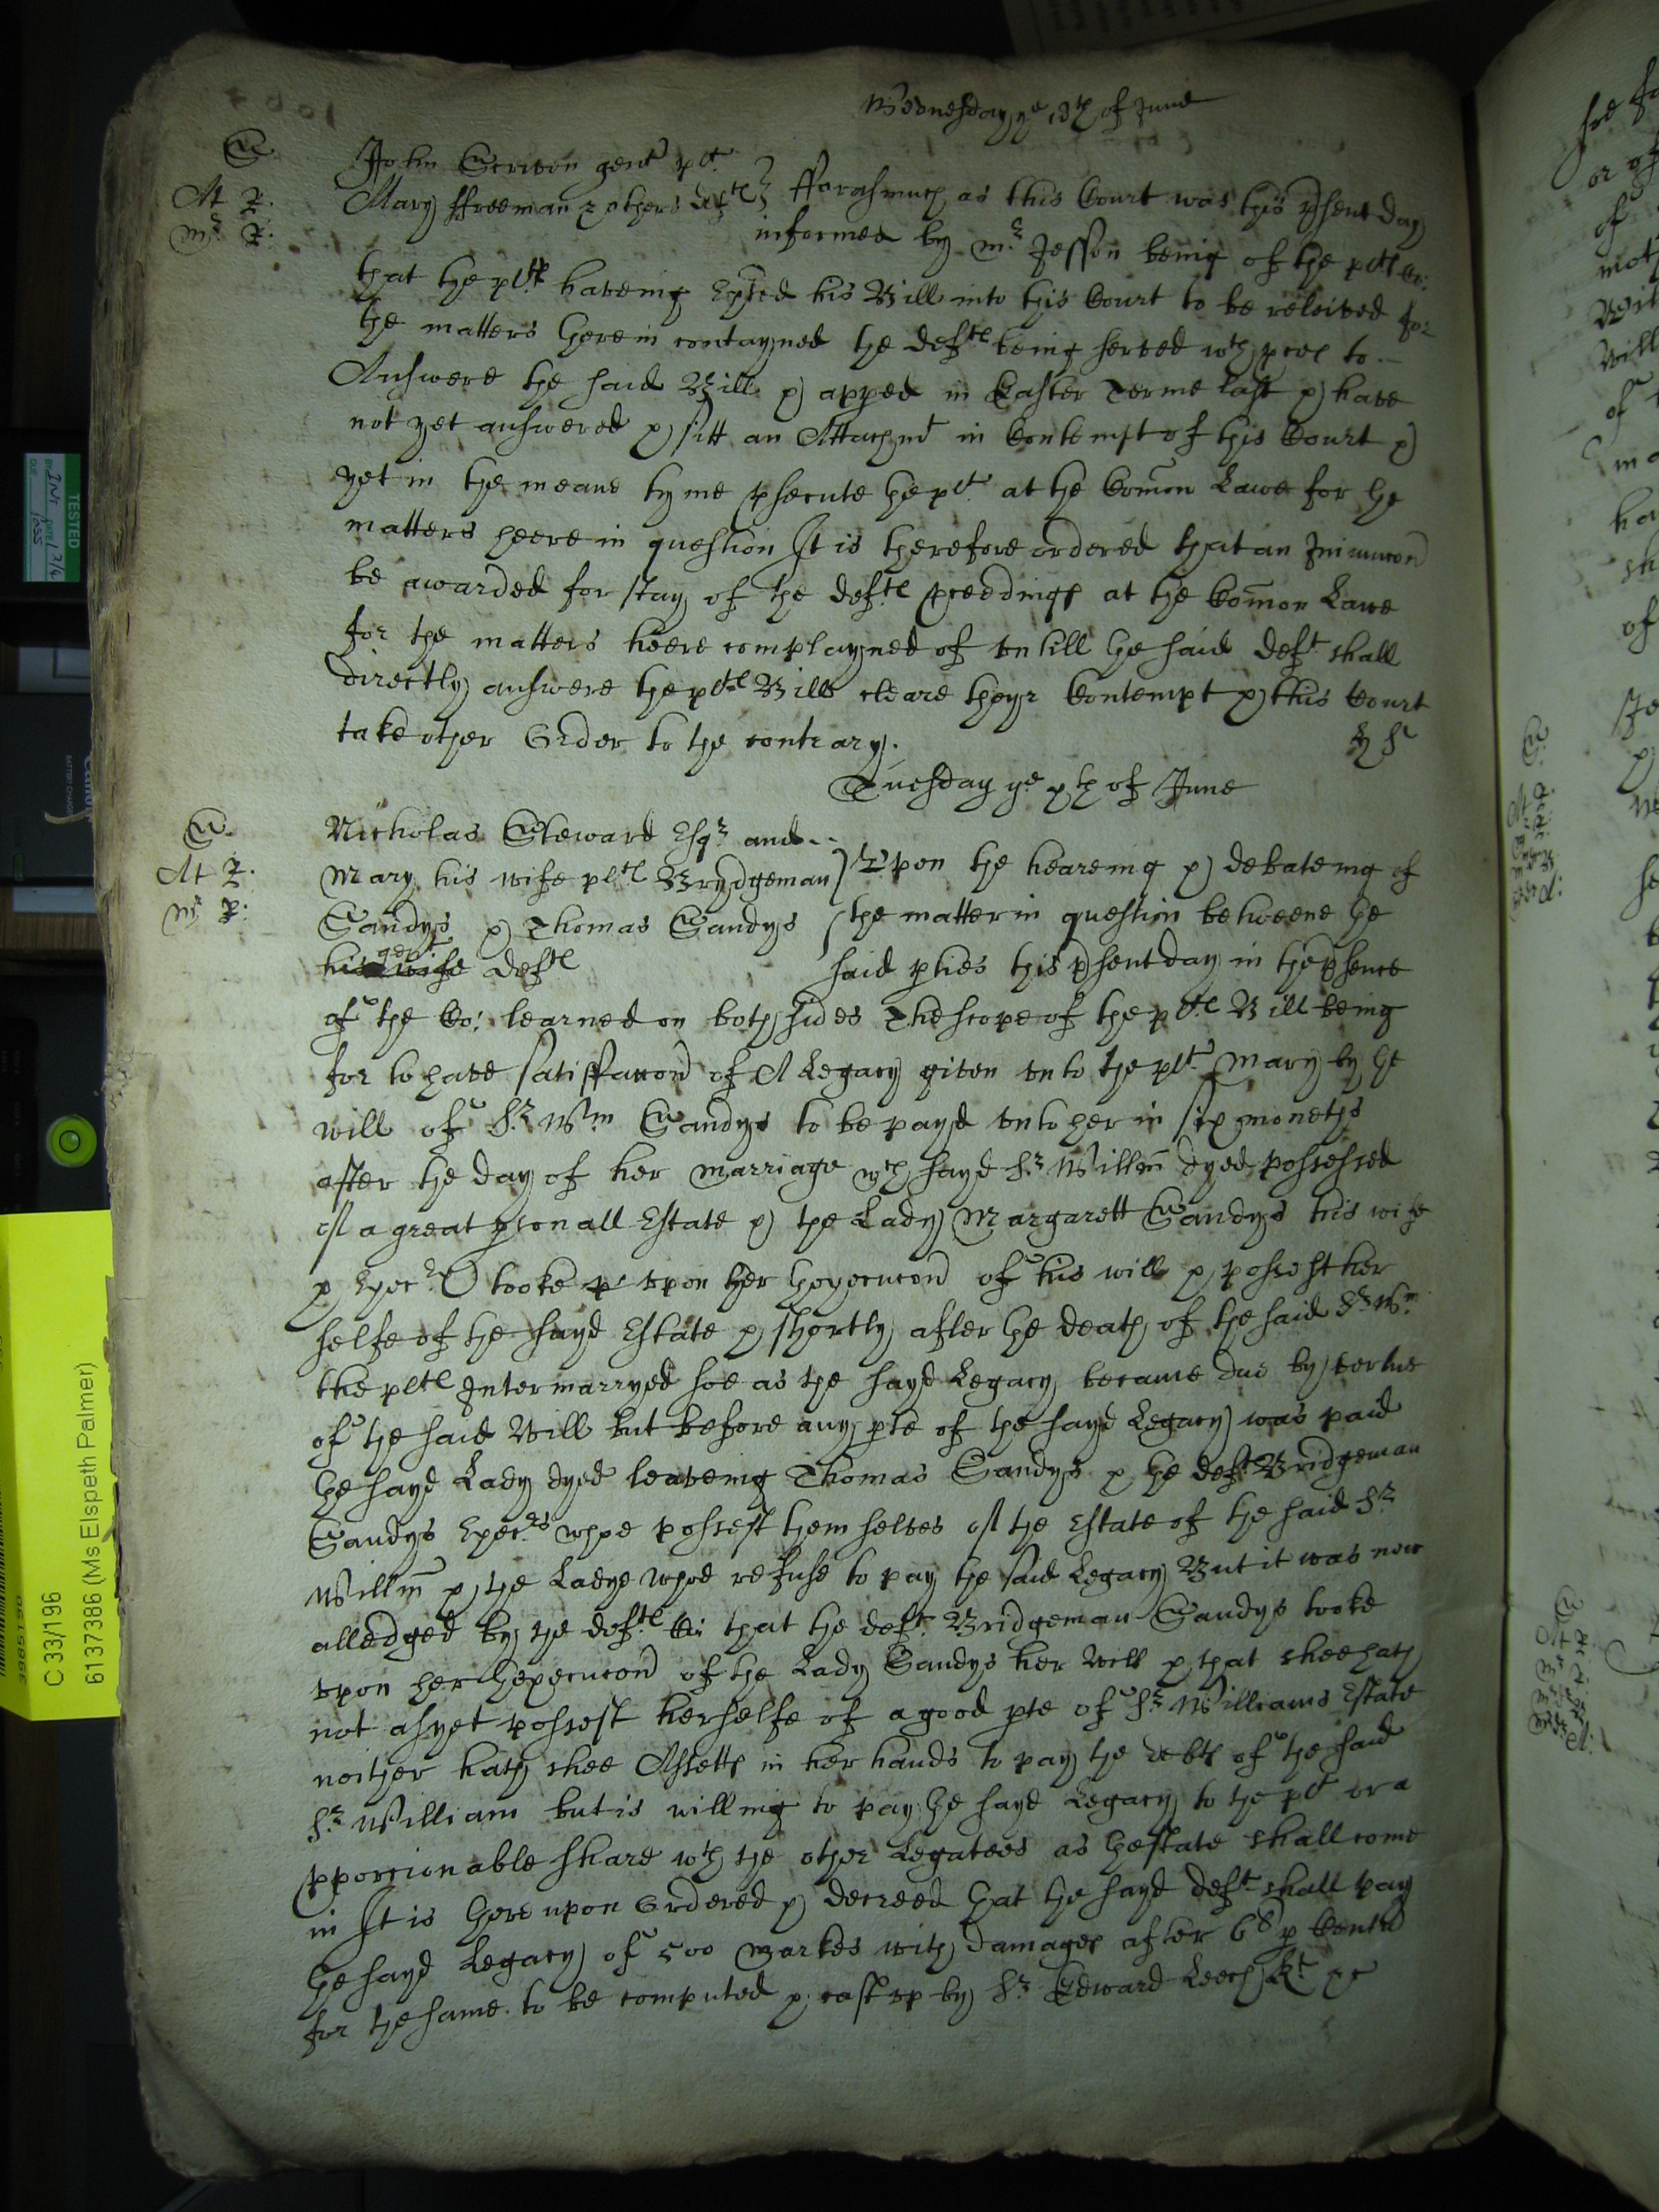 Wednesday ye 19th of June
S
At R:
Mr R:
John Scriven gent plt
Mary ffreeman & others defts fforasmuch as this Court was this psent day
informed by Mr Jesson being of the plts Co:
that the plt haveing exhted his Bill into this Court to be releived for
the matters therein contayned the defts being served wth proces to
Answere the said Bill & apped in Easter Terme last & have
not yet answered & sitt an Attachmt in Contempt of this Court &
yet in the meane tyme psecute the plt at the Comon Lawe for the
matters heere in question It is therefore ordered that an Iniunccon
be awarded for stay of the defts pceedings at the Comon Lawe
for the matters heere complayned of vntill the said deft shall
directly answere the plts Bill cleare theyr Contempt & this Court
take other Order to the contrary.
Tuesday ye xth of June
S
At R:
Mr R:
Nicholas Steward Esqr and
Mary his wife plts Brydgeman Vpon the heareing & debateing of
Sandys & Thomas Sandys the matter in question betweene the
gent
his wife defts said pties this psent day in the psence
of the Co: learned on both sides The scope of the plts Bill being
for to have satisfaccon of A Legacy given vnto the plt Mary by the
will of Sr Wm Sandys to be payd vnto her in six moneths
after the day of her marriage wch sayd Sr Willm dyed possessed
of a great psonall Estate & the Lady Margarett Sandys his wife
& Execr tooke vpon her thexecucon of his will & possest her
selfe of the sayd Estate & shortly after the death of the said Sr Wm
the plts Intermarryed soe as the sayd Legacy became due by vertue
of the said Will but before any pte of the sayd Legacy was paid
the sayd Lady dyed leaveing Thomas Sandys & the deft Bridgeman
Sandys Execrs whoe possest themselves of the Estate of the said Sr
Willm & the Ladye whoe refuse to pay the said Legacy But it was now
alledged by the defts Co: that the deft Bridgeman Sandys tooke
vpon her thexecucon of the Lady Sandys her Will & that shee hath
not as yet possest herselfe of a good pte of Sr Williams Estate
neither hath shee Assetts in her hands to pay the debts of the said
Sr William but is willing to pay the sayd Legacy to the plt or a
pporcionable share wth the other Legatees as thestate shall come
in It is therevpon Ordered & decreed that the sayd deft shall pay
the sayd Legacy of 500 Markes with damages after 6l p Cent
for the same to be computed & cast vp by Sr Edward Leech Kt
TESTED
C 33/196
6137386 (Ms Elspeth Palmer)